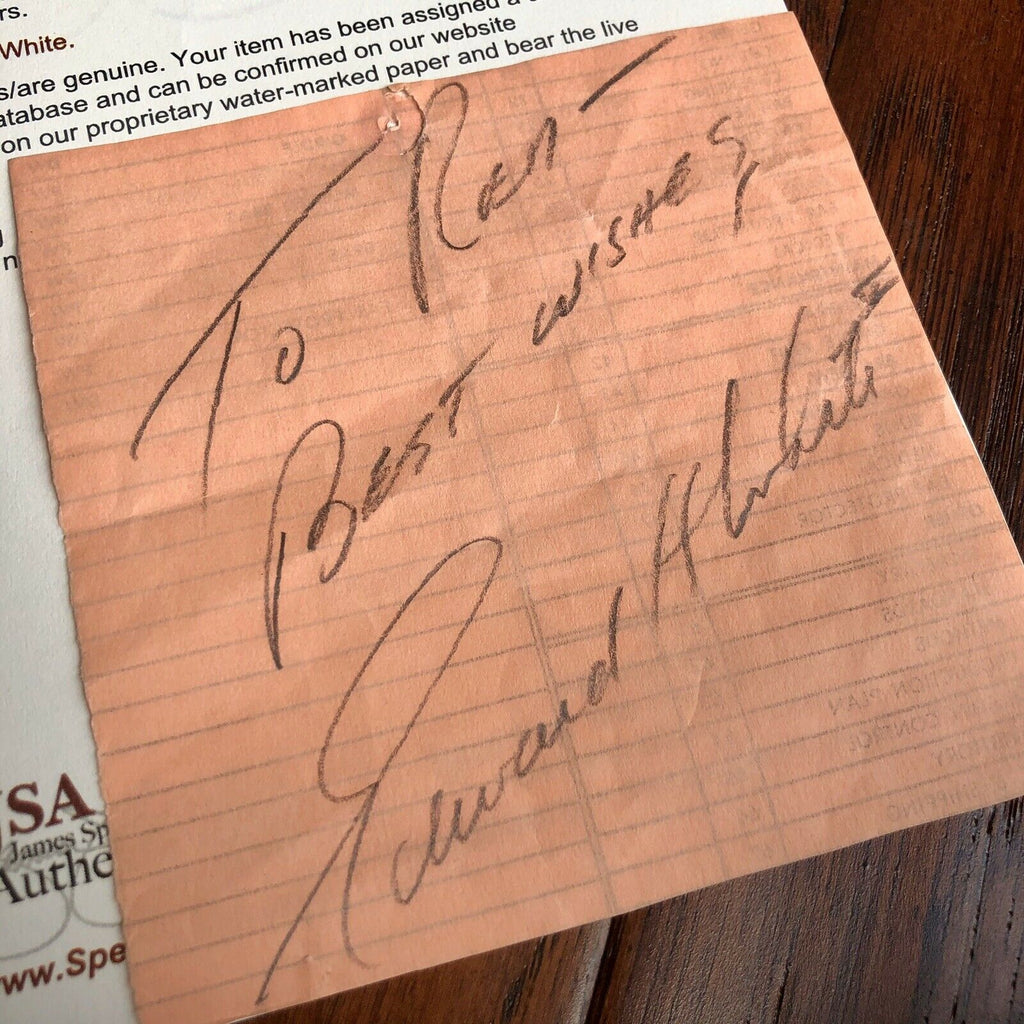 rs.
White.
s/are genuine. Your item has been assigned a
atabase and can be confirmed on our website
on our proprietary water-marked paper and bear the live
n
To Ren –
BEST WISHES
Edward H White II
USA
James Sp
Authe
ww.Spe